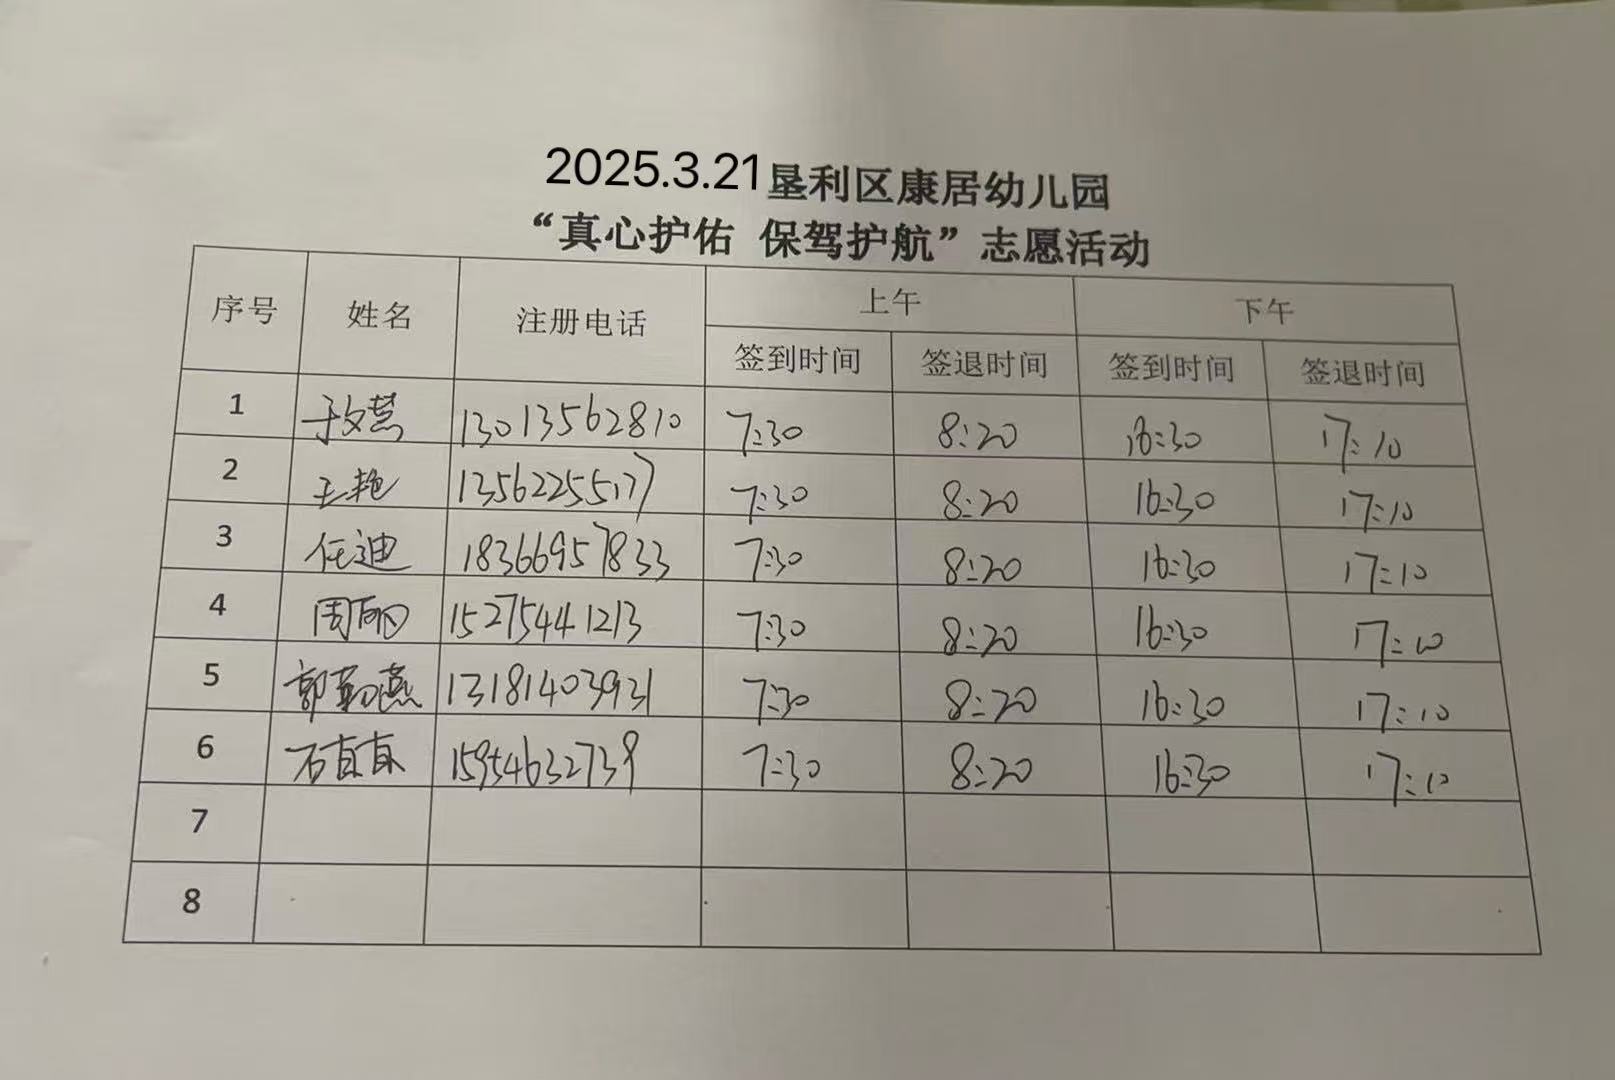 2025.3.21 垦利区康居幼儿园
“真心护佑 保驾护航”志愿活动
序号 姓名 注册电话 上午 下午
签到时间 签退时间 签到时间 签退时间
1 于文慧 13013562810 7:30 8:20 16:30 17:10
2 王艳 13562255177 7:30 8:20 16:30 17:10
3 任迪 18366957833 7:30 8:20 16:30 17:10
4 周丽 15275441213 7:30 8:20 16:30 17:10
5 郭勤燕 13181403931 7:30 8:20 16:30 17:10
6 石直直 15954632739 7:30 8:20 16:30 17:10
7
8